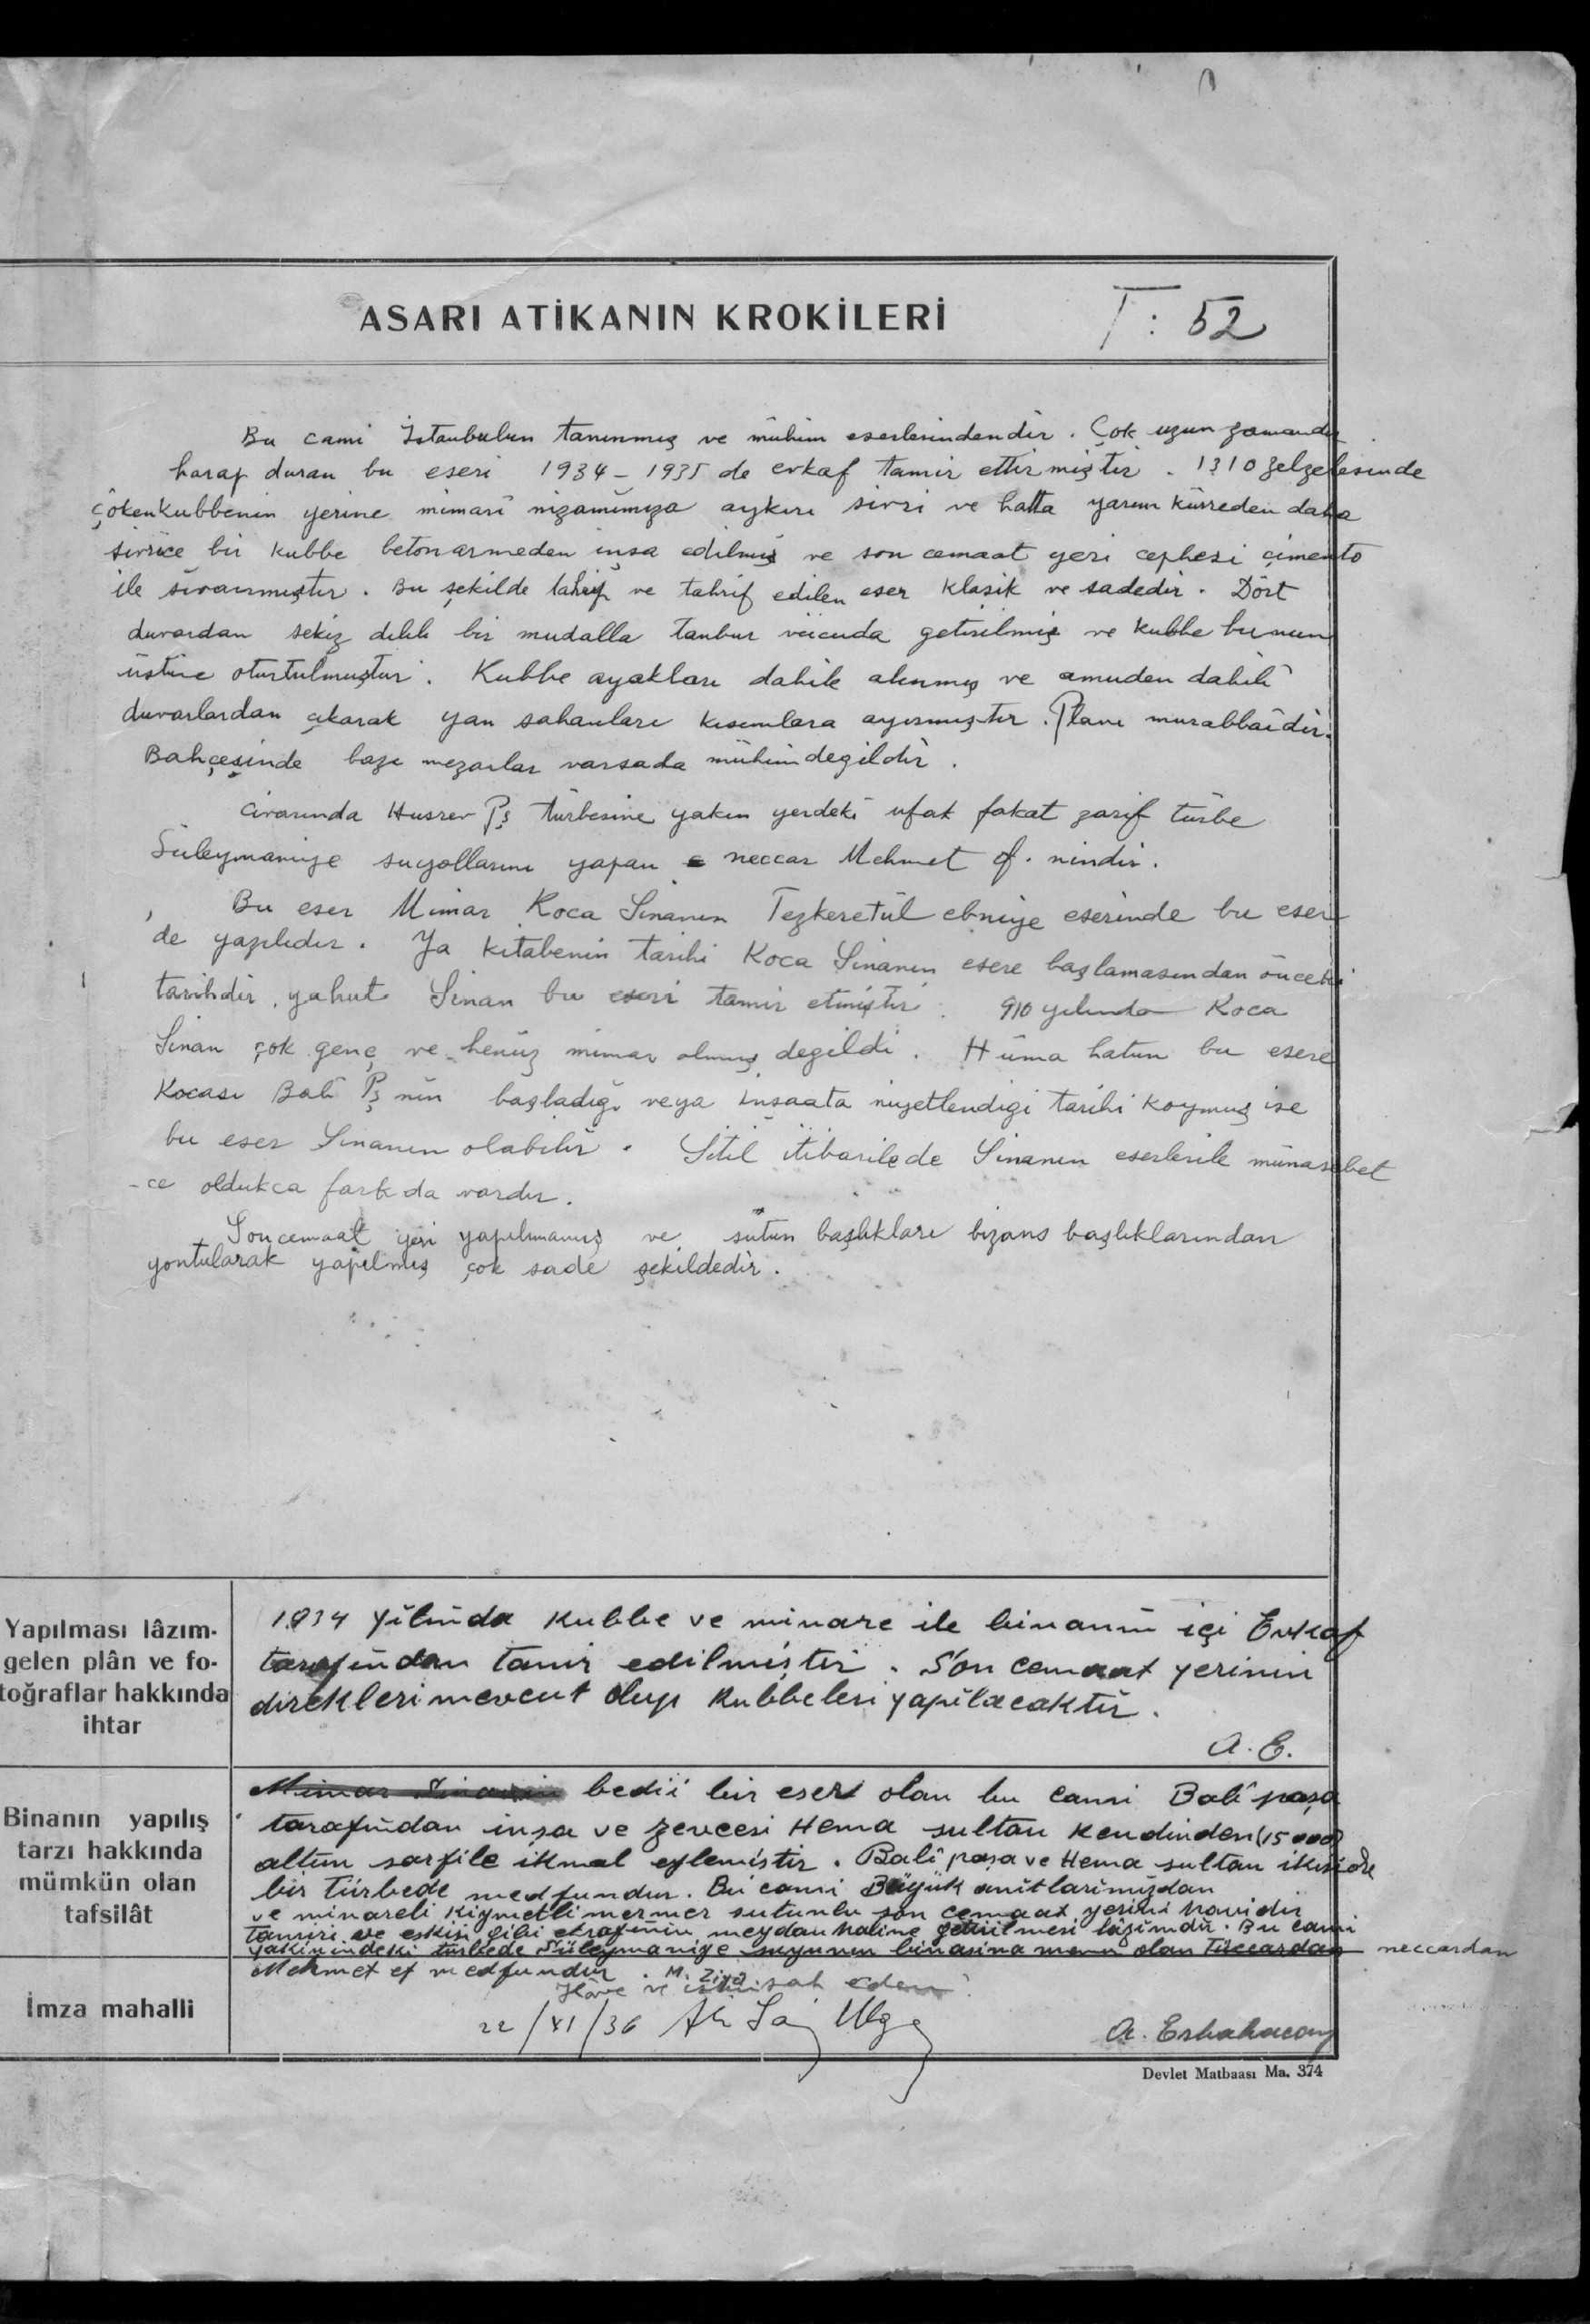 ASARI ATİKANIN KROKİLERİ
T: 52
Bu cami İstanbulun tanınmış ve mühim eserlerindendir. Çok uzun zamandır
harap duran bu eseri 1934-1935 de evkaf tamir ettirmiştir. 1310 zelzelesinde
çökenkubbenin yerine mimarî nizamımıza aykırı sivri ve hatta yarım küreden daha
sivrice bir kubbe betonarmeden inşa edilmiş ve son cemaat yeri cephesi çimento
ile sıvanmıştır. Bu şekilde tahrip ve tahrif edilen eser klasik ve sadedir. Dört
duvardan sekiz dılılı bir mudalla tanbur vücuda getirilmiş ve kubbe bunun
üstüne oturtulmuştur. Kubbe ayakları dahile alınmış ve amuden dahilî
duvarlardan çıkarak yan sahanları kısımlara ayırmıştır. Planı murabbaîdir.
Bahçesinde bazı mezarlar varsada mühim degildir.
Civarında Husrev Pş türbesine yakın yerdeki ufak fakat zarif türbe
Süleymaniye suyollarını yapan neccar Mehmet ef. nindir.
Bu eser Mimar Koca Sinanın Tezkeretül ebniye eserinde bu eser
de yazılıdır. Ya kitabenin tarihi Koca Sinanın esere başlamasından önceki
tarihdir, yahut Sinan bu eseri tamir etmiştir. 910 yılında Koca
Sinan çok genç ve henüz mimar olmuş degildi. Hüma hatun bu esere
Kocası Bali Pş nın başladığı veya inşaata niyetlendigi tarihi koymuş ise
bu eser Sinanın olabilir. Sitil itibarilede Sinanın eserlerile münasebet
-ce oldukca fark da vardır.
Soncemaat yeri yapılmamış ve sütun başlıkları bizans başlıklarından
yontularak yapılmış çok sade şekildedir.
Yapılması lâzım-
gelen plân ve fo-
toğraflar hakkında
ihtar
1934 yılında kubbe ve minare ile binanın içi Evkaf
tarafından tamir edilmiştir. Son cemaat yerinin
direkleri mevcut olup kubbeleri yapılacaktır.
A. E.
Binanın yapılış
tarzı hakkında
mümkün olan
tafsilât
Mimar Sinanın bedii bir eseri olan bu cami Balî paşa
tarafından inşa ve zevcesi Hema sultan kendinden (15000)
altun sarfile ikmal eylemiştir. Balî paşa ve Hema sultan ikiside
bir türbede medfundur. Bu cami Büyük anıtlarımızdan
ve minareli kıymetli mermer sutunlu son cemaat yerini havidir
tamiri ve eskisi gibi etrafının meydan haline getirilmesi lâzımdır. Bu cami
yakınindeki türbede Süleymaniye suyunun binasına memur olan tüccardan neccardan
Mehmet ef medfundur. M. Ziya
İlâve ve istinsah eden
İmza mahalli
22/XI/36
A. Erbahacan
Devlet Matbaası Ma. 374